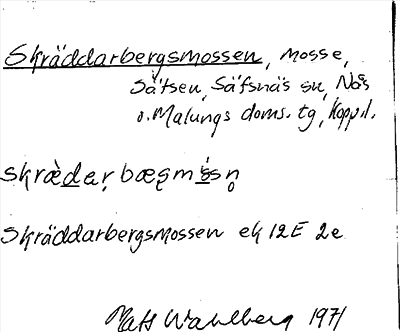 Skräddarbergsmossen, mosse,
Säfsen, Säfsnäs sn, Nås
o. Malungs doms. tg, Kopp.l.
skrædar bærgmåsn
Skräddarbergsmossen ek 12E 2e
Mats Wahlberg 1971